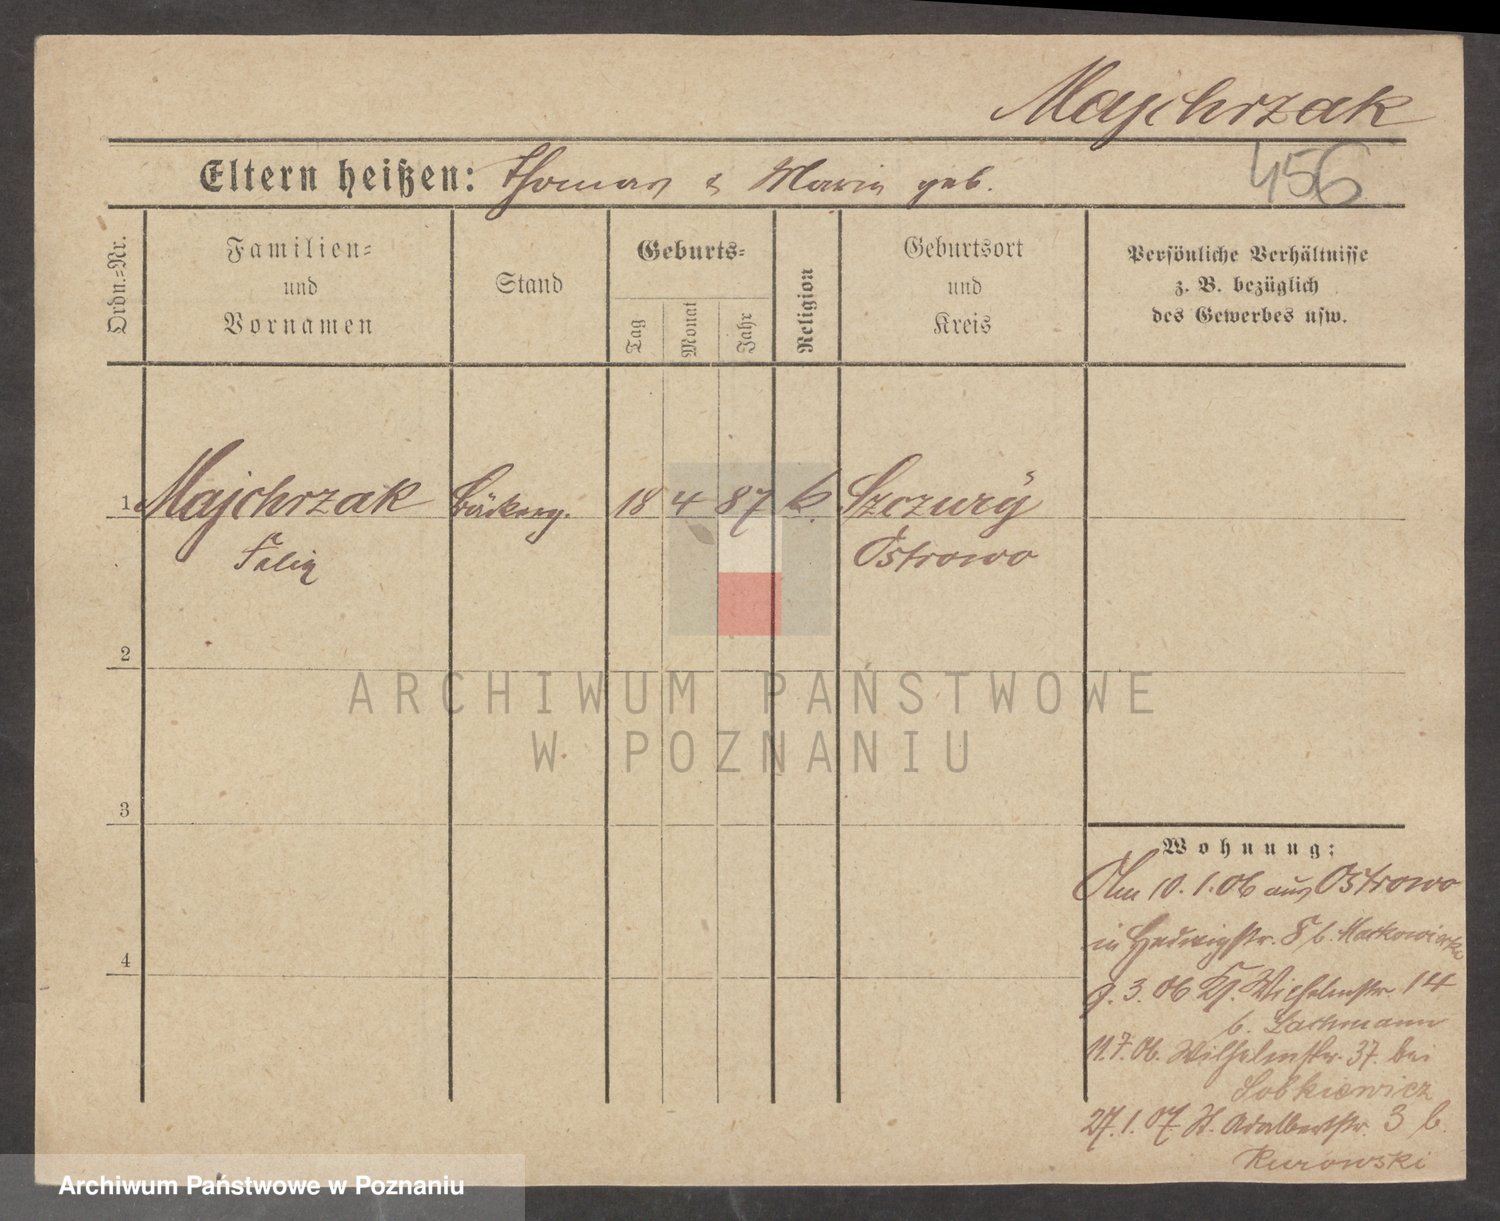 Majchrzak
456
Eltern heißen: Thomas & Marie geb.
Ordn.=Nr.
Familien=
und
Vornamen
Stand
Geburts=
Tag
Monat
Jahr
Religion
Geburtsort
und
Kreis
Persönliche Verhältnisse
z. B. bezüglich
des Gewerbes usw.
1 Majchrzak Bäckerg. 18 4 87 k. Szczury
Felix Ostrowo
2
3
4
Wohnung:
Am 10.1.06 aus Ostrowo
in Hedwigstr. 8 b. Markowiak
9.3.06 Kl. Wilhelmstr. 14
b. Lachmann
11.7.06. Wilhelmstr. 37. bei
Sobkiewicz
27.1.07 St. Adalbertstr. 3 b.
Kurowski
ARCHIWUM PAŃSTWOWE
W POZNANIU
Archiwum Państwowe w Poznaniu